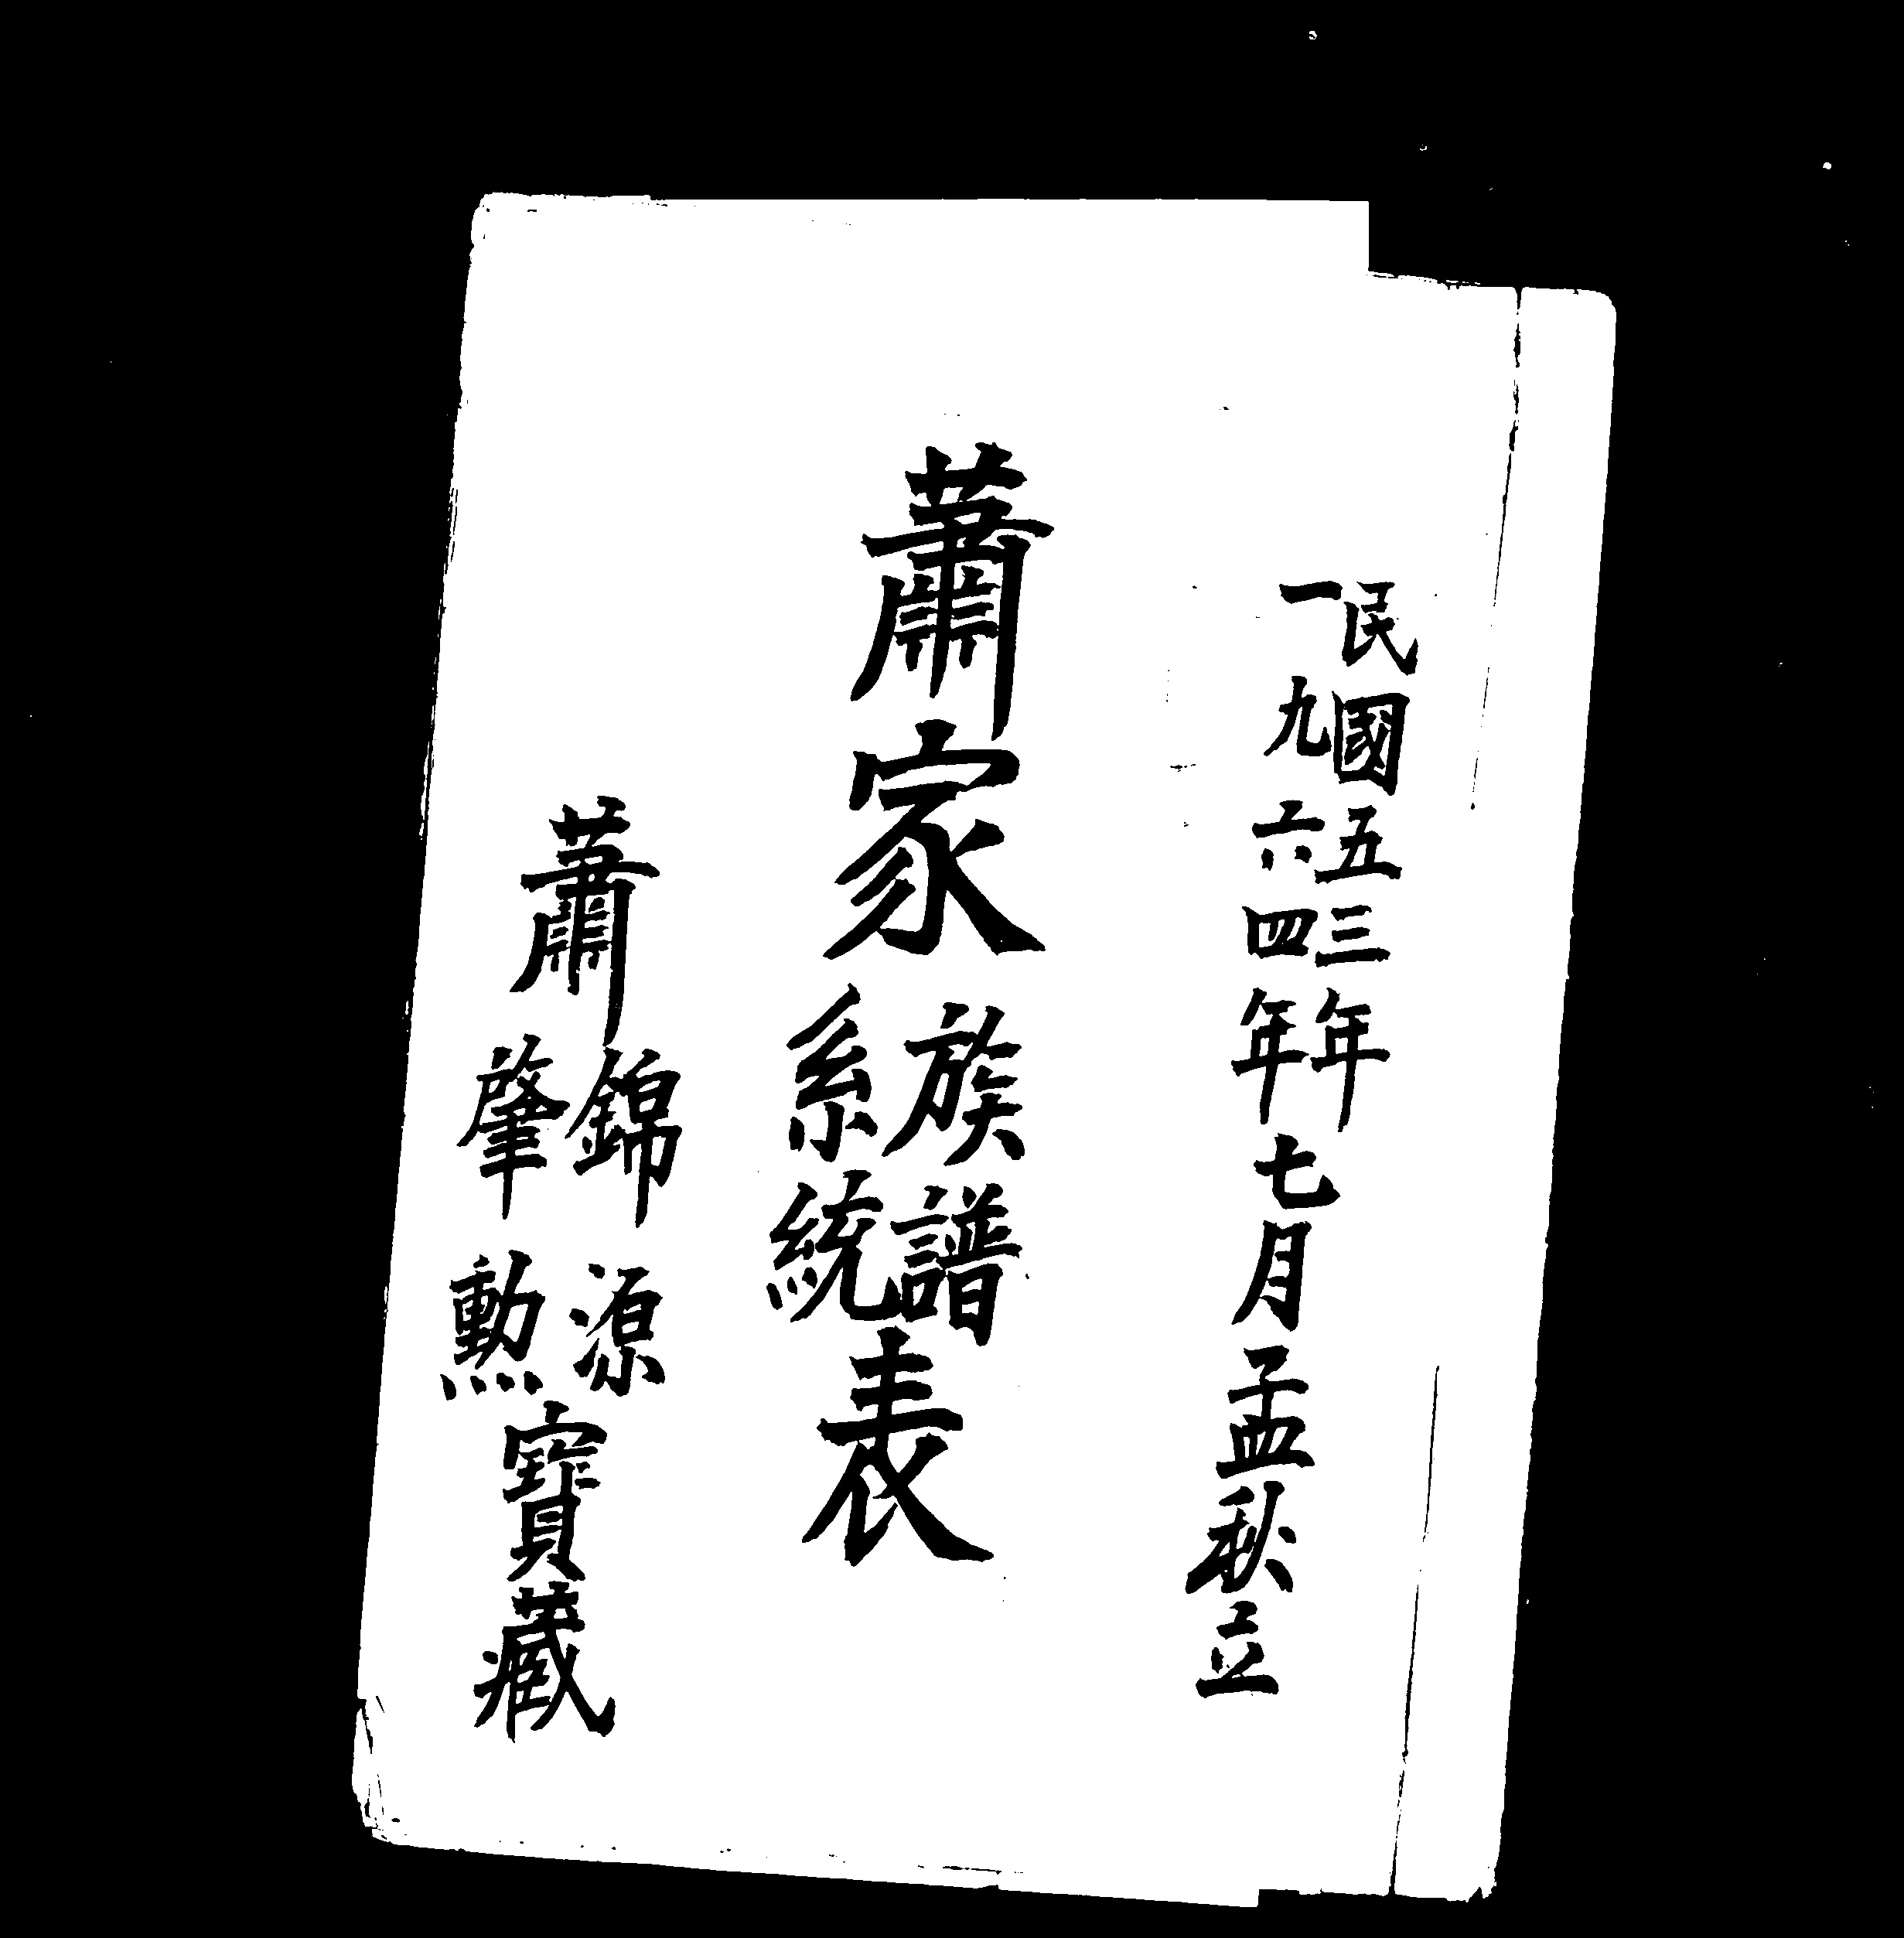 民國五三年
一九六四年
七月孟秋立
蕭家
族譜
系統
表
蕭
錦源
肇勳
寶藏